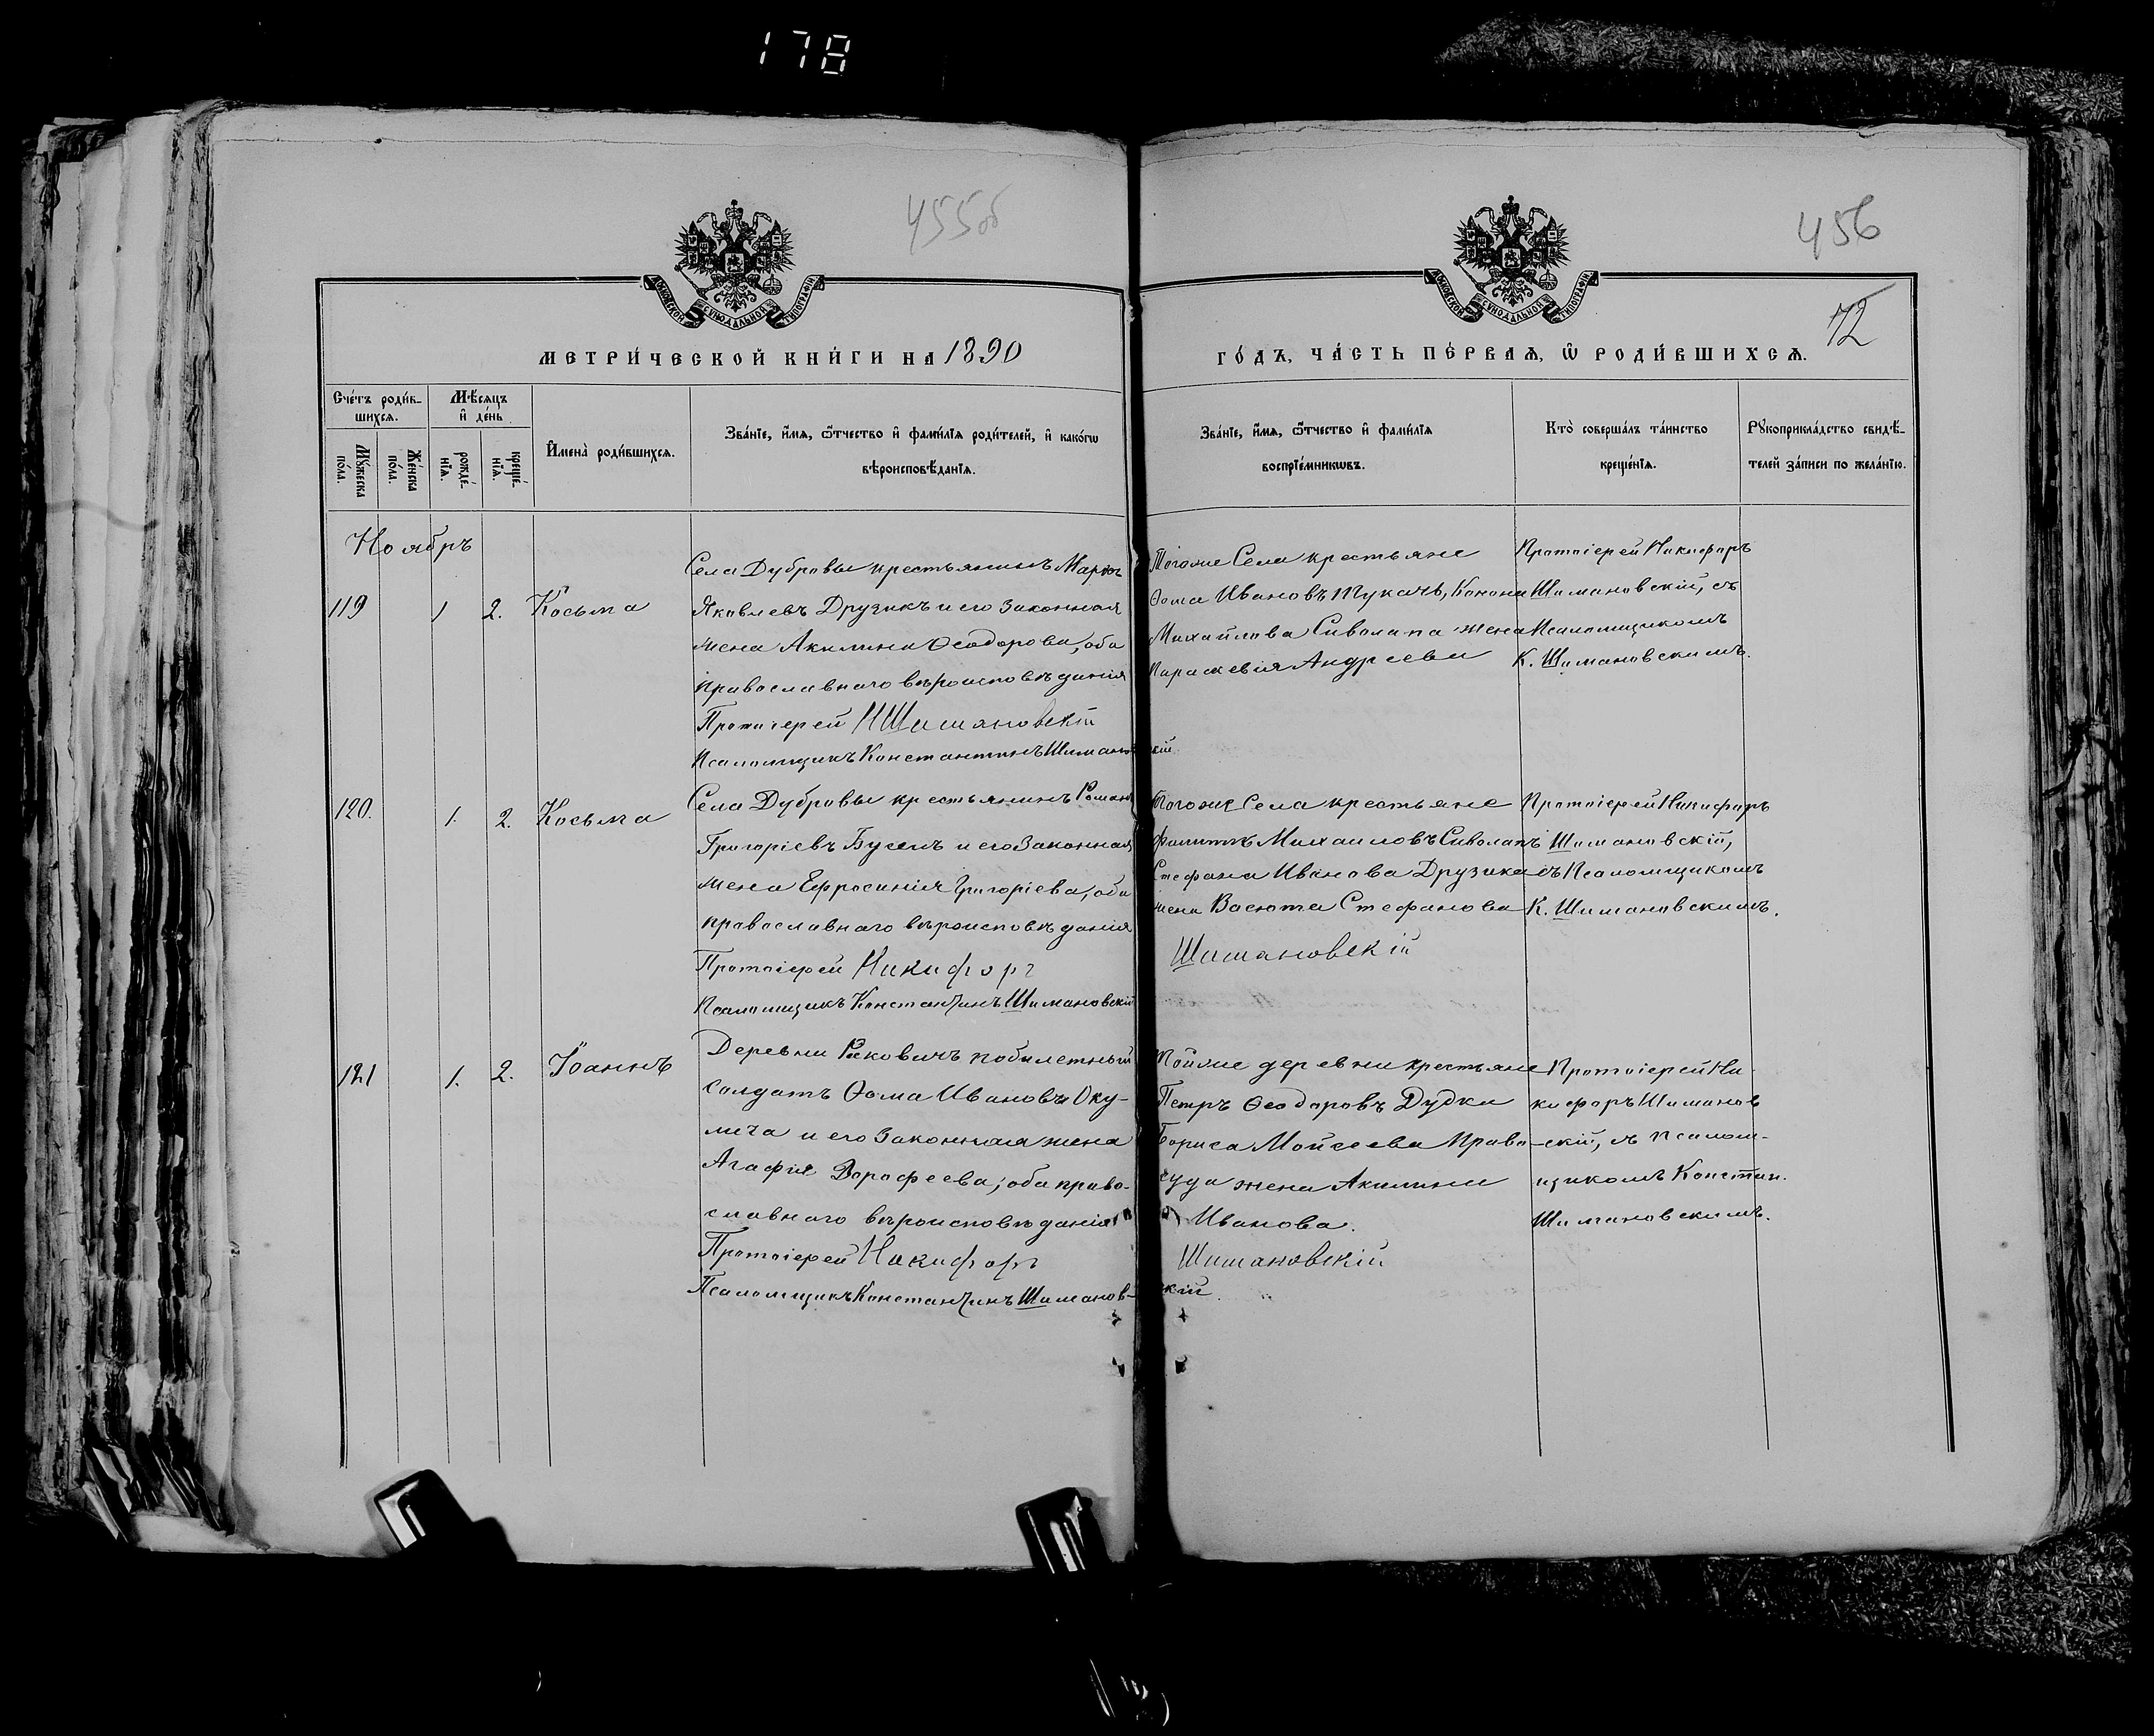 178
455об
456
72
МОСКОВСКОЙ СѴНОДАЛЬНОЙ ТИПОГРАФІИ
МОСКОВСКОЙ СѴНОДАЛЬНОЙ ТИПОГРАФІИ
МЕТРИ́ЧЕСКОЙ КНИ́ГИ НА 1890
ГО́ДЪ, ЧА́СТЬ ПЕ́РВАѦ, Ѡ҆ РОДИ́ВШИХСѦ.
Сче́тъ роди́в-
шихсѧ.
Мꙋ́жеска
по́ла.
Же́нска
по́ла.
Мѣ́сѧцъ
и҆ де́нь
рожде́-
нїѧ.
креще́-
нїѧ.
И҆мена̀ роди́вшихсѧ.
Зва́нїе, и҆́мѧ, ѻ҆́тчество и҆ фами́лїѧ роди́телей, и҆ како́гѡ
вѣроисповѣ́данїѧ.
Зва́нїе, и҆́мѧ, ѻ҆́тчество и҆ фами́лїѧ
воспрїе́мникѡвъ.
Кто̀ соверша́лъ та́инство
креще́нїѧ.
Рꙋкоприкла́дство свидѣ́-
телей за́писи по жела́нїю.
Ноябрь
119
1
2.
Косьма
Села Дубровы крестьянинъ Марко
Яковлевъ Друзикъ и его законная
жена Акилина Ѳеодорова, оба
православнаго вѣроисповѣданія
Протоіерей Н Шимановскій
Псаломщикъ Константинъ Шимановскій
Тогоже Села крестьяне
Ѳома Ивановъ Тукачъ, Конона
Михайлова Сиволапа жена
Параскевія Андреева
Протоіерей Никифоръ
Шимановскій, съ
Псаломщикомъ
К. Шимановскимъ.
120.
1.
2.
Косьма
Села Дубровы крестьянинъ Романъ
Григоріевъ Буселъ и его законная
жена Ефросинія Григоріева, оба
православнаго вѣроисповѣданія
Протоіерей Никифоръ Шимановскій
Псаломщикъ Константинъ Шимановскій
Тогоже Села крестьяне
Михаиловъ Сиволапъ
Стефана Иванова Друзика
жена Васюта Стефанова
Протоіерей Никифоръ
Шимановскій,
съ Псаломщикомъ
К. Шимановскимъ.
121
1.
2.
Іоаннъ
Деревни Раковичъ побилетный
солдатъ Ѳома Ивановъ Оку-
лича и его законная жена
Агафія Дорофеева, оба право-
славнаго вѣроисповѣданія
Протоіерей Никифоръ Шимановскій
Псаломщикъ Константинъ Шимановскій
Тойже деревни крестьяне
Петръ Ѳеодоровъ Дудка
Бориса Мойсеева Право-
суда жена Акилина
Иванова.
Протоіерей Ни-
кифоръ Шиманов
скій, съ псалом-
щикомъ Констан.
Шимановскимъ.